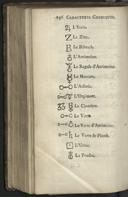 CARACTERES CHYMIQUES.
L'Etain.
Le Zinc.
Le Bismuth.
L'Antimoine.
Le Regule d'Antimoine.
Le Mercure.
L'Arsenic.
L'Orpiment.
Le Cinabre.
Le Verre.
Le Verre d'Antimoine.
Le Verre de Plomb.
L'Urine.
La Poudre.